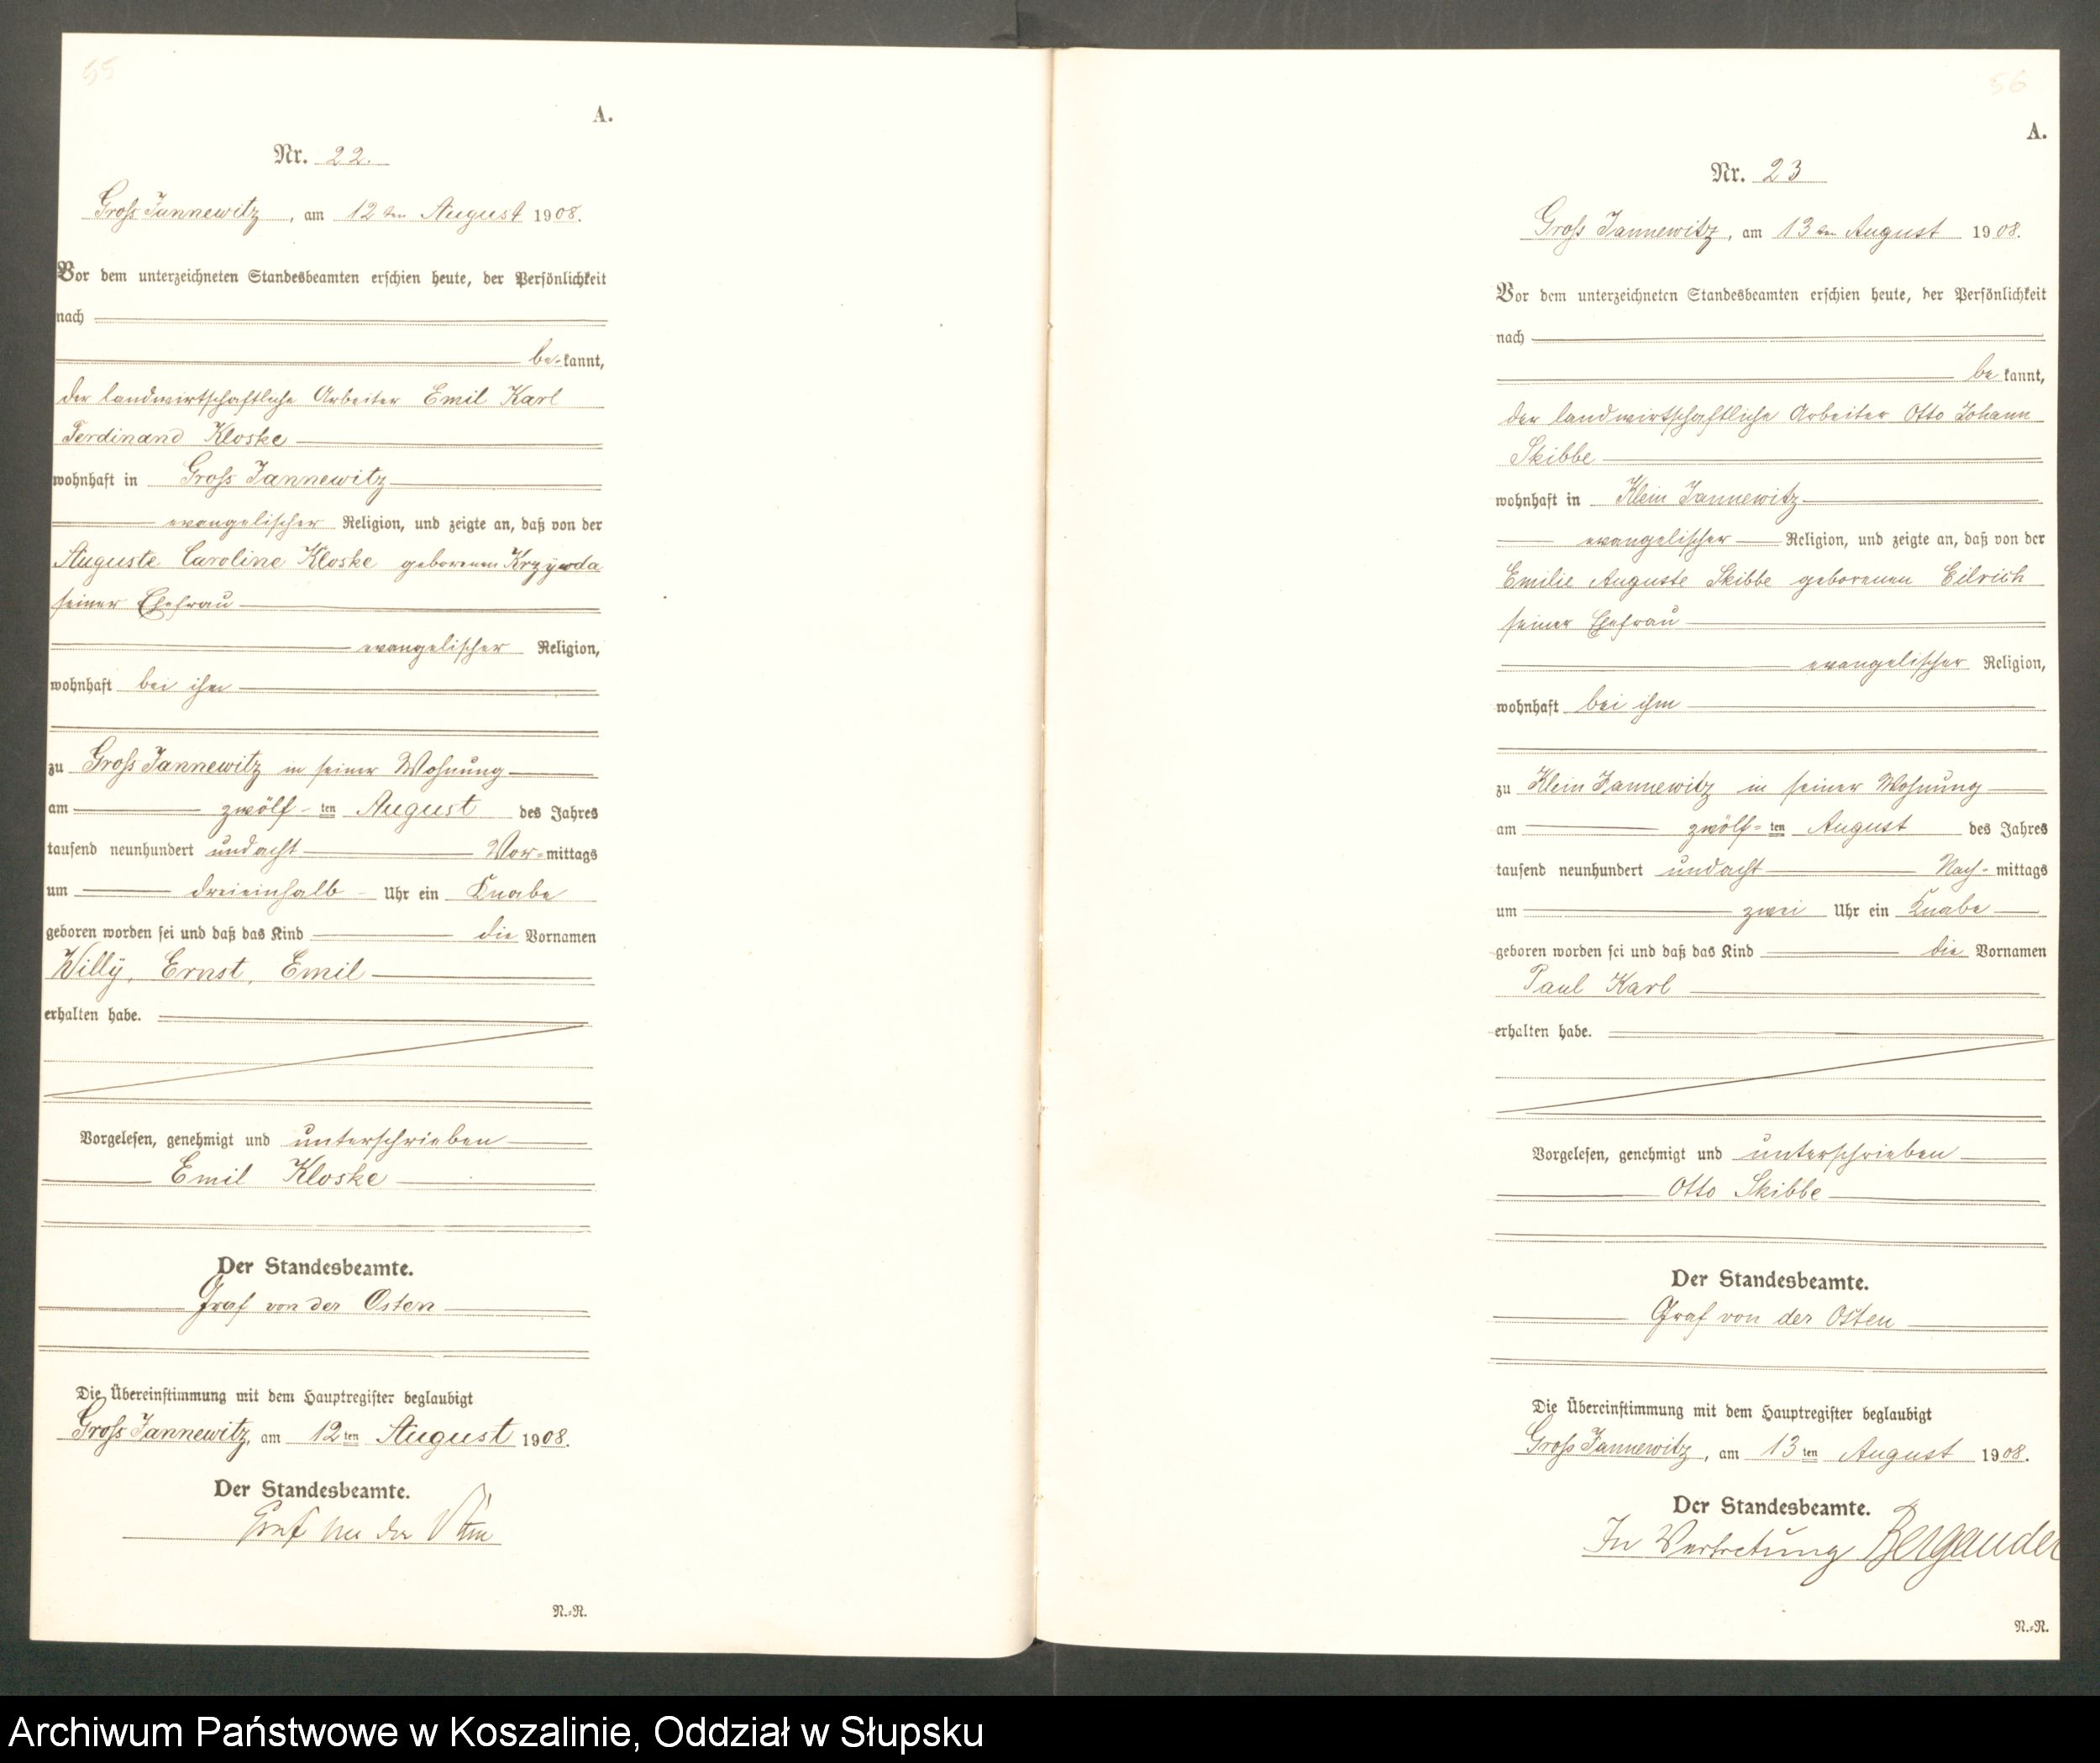 55
A.
Nr. 22.
Gross Jannewitz, am 12ten August 1908.
Vor dem unterzeichneten Standesbeamten erschien heute, der Persönlichkeit
nach
be-kannt,
der landwirtschaftliche Arbeiter Emil Karl
Ferdinand Kloske
wohnhaft in Gross Jannewitz
evangelischer Religion, und zeigte an, daß von der
Auguste Caroline Kloske geborenen Krzywda
seiner Ehefrau
evangelischer Religion,
wohnhaft bei ihm
zu Gross Jannewitz in seiner Wohnung
am zwölf-ten August des Jahres
tausend neunhundert undacht Vor-mittags
um dreieinhalb Uhr ein Knabe
geboren worden sei und daß das Kind die Vornamen
Willÿ, Ernst, Emil
erhalten habe.
Vorgelesen, genehmigt und unterschrieben
Emil Kloske
Der Standesbeamte.
Graf von der Osten
Die Übereinstimmung mit dem Hauptregister beglaubigt
Gross Jannewitz, am 12ten August 1908.
Der Standesbeamte.
Graf von der Osten
N.=N.
56
A.
Nr. 23
Gross Jannewitz, am 13ten August 1908.
Vor dem unterzeichneten Standesbeamten erschien heute, der Persönlichkeit
nach
be kannt,
der landwirtschaftliche Arbeiter Otto Johann
Skibbe
wohnhaft in Klein Jannewitz
evangelischer Religion, und zeigte an, daß von der
Emilie Auguste Skibbe geborenen Eilrich
seiner Ehefrau
evangelischer Religion,
wohnhaft bei ihm
zu Klein Jannewitz in seiner Wohnung
am zwölf=ten August des Jahres
tausend neunhundert undacht Nach-mittags
um zwei Uhr ein Knabe
geboren worden sei und daß das Kind die Vornamen
Paul Karl
erhalten habe.
Vorgelesen, genehmigt und unterschrieben
Otto Skibbe
Der Standesbeamte.
Graf von der Osten
Die Übereinstimmung mit dem Hauptregister beglaubigt
Gross Jannewitz, am 13ten August 1908.
Der Standesbeamte.
In Vertretung Bergander
N.=N.
Archiwum Państwowe w Koszalinie, Oddział w Słupsku